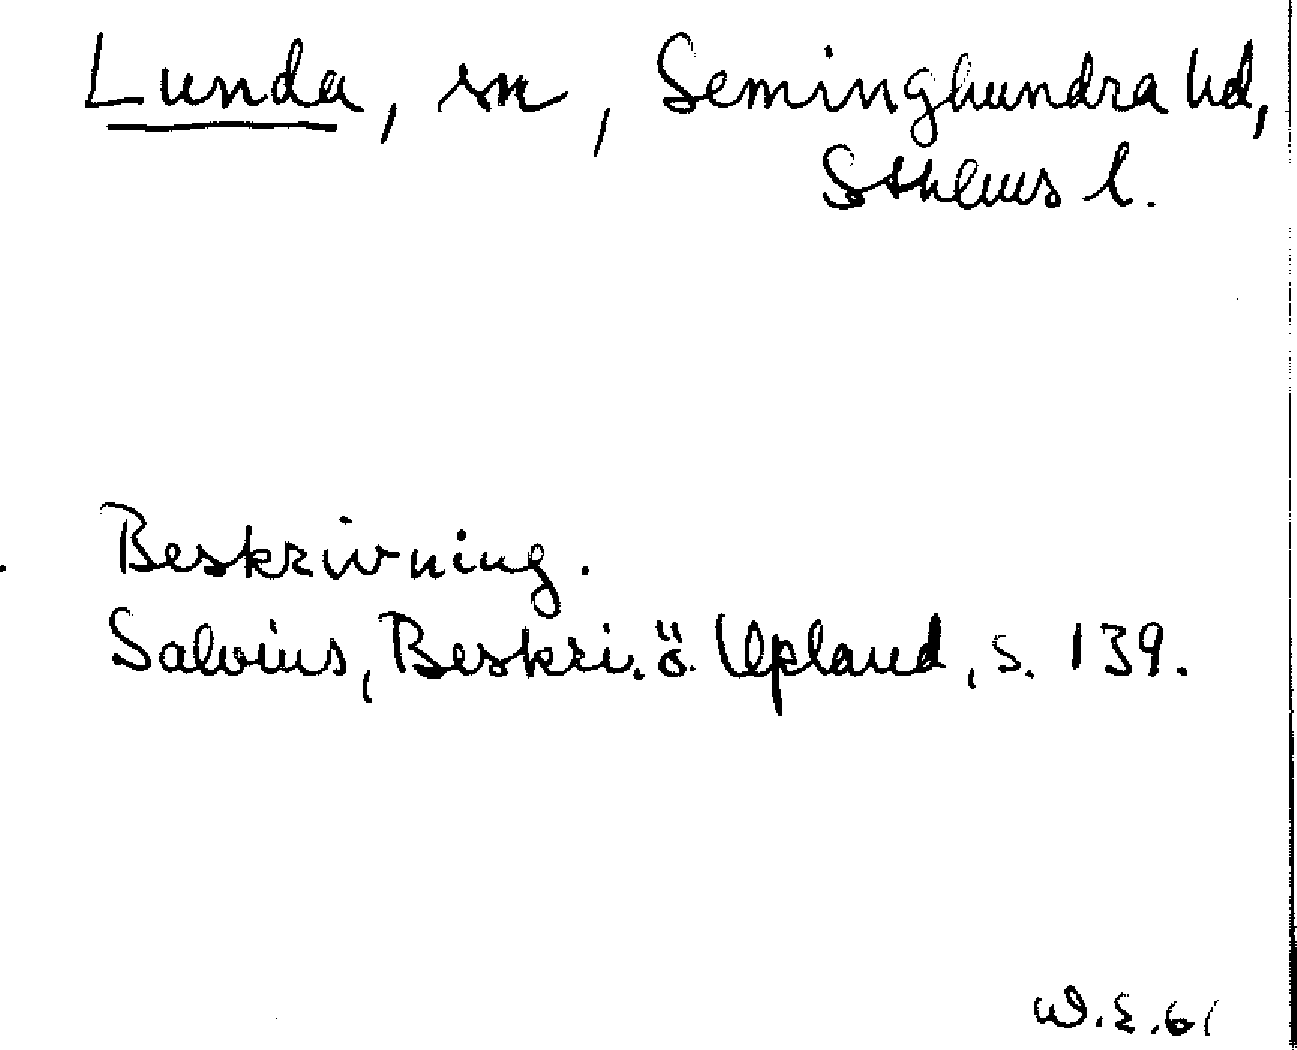 Lunda, sn, Seminghundra hd,
Sthlms l.
Beskrivning.
Salvius, Beskri. ö. Upland, s. 139.
W.E.61